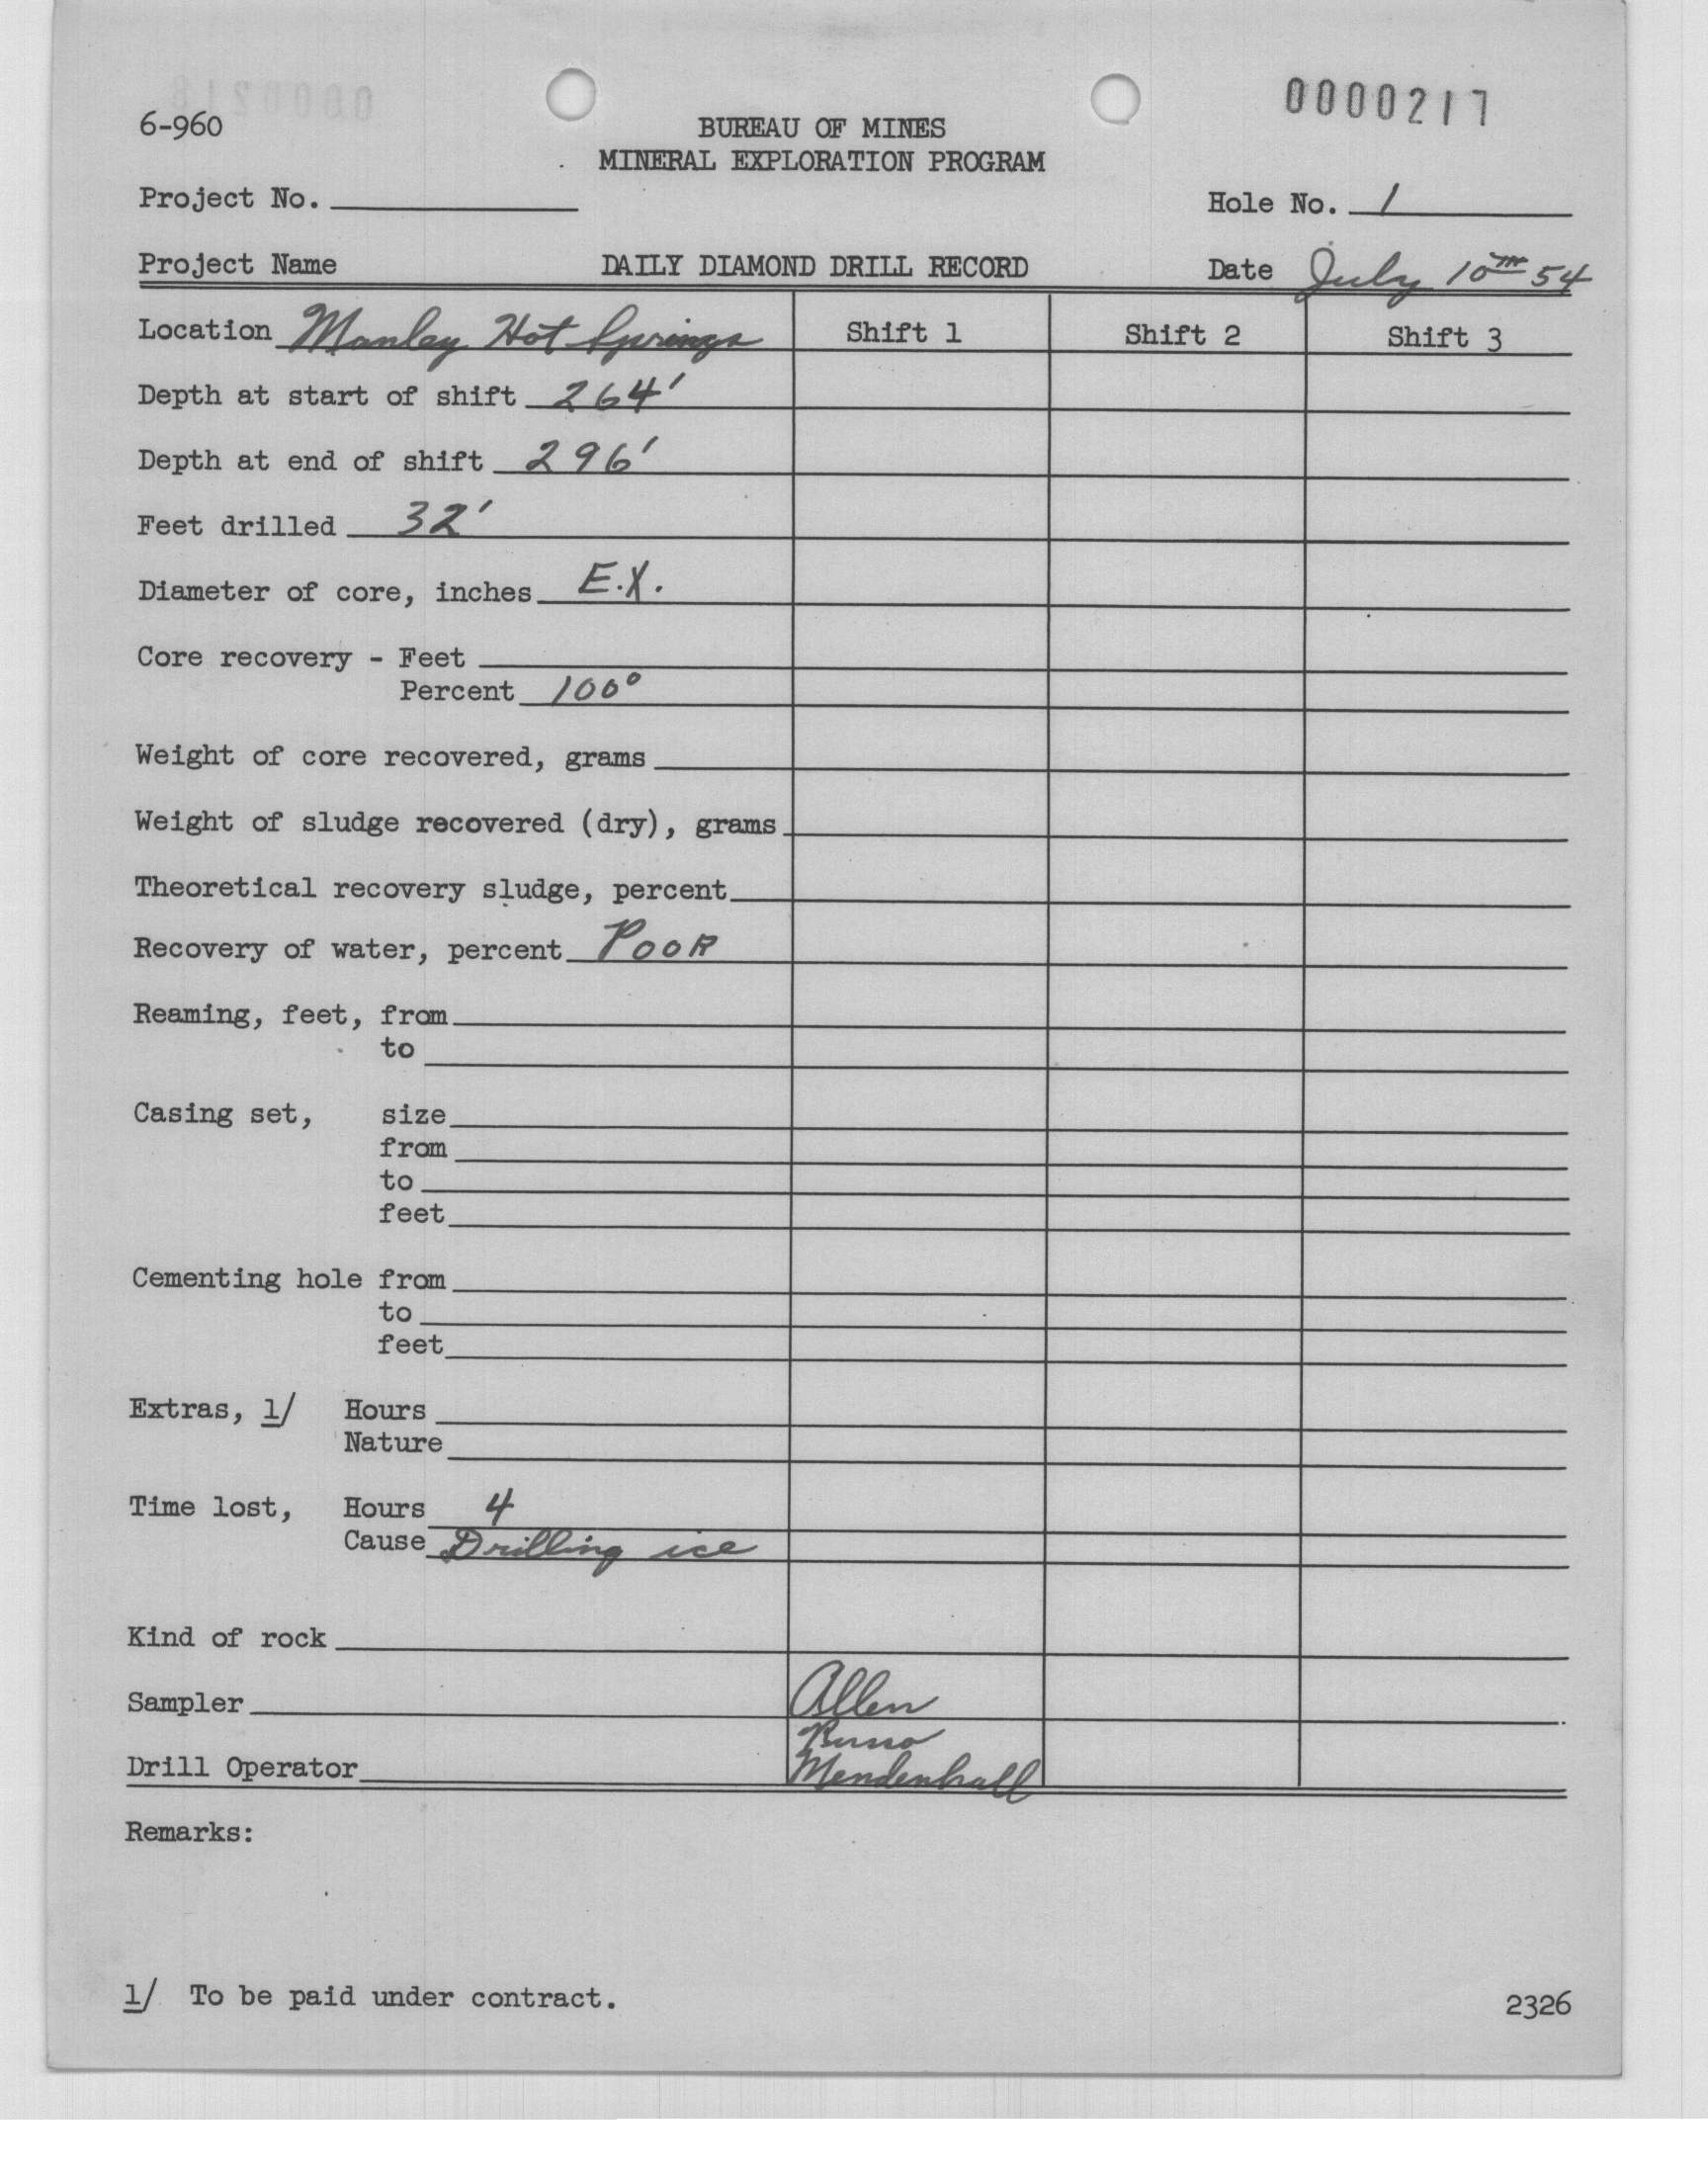 0000217
6-960
BUREAU OF MINES
MINERAL EXPLORATION PROGRAM
Project No.
Hole No. 1
Project Name DAILY DIAMOND DRILL RECORD Date July 10th 54
Location Manley Hot Springs Shift 1 Shift 2 Shift 3
Depth at start of shift 264'
Depth at end of shift 296'
Feet drilled 32'
Diameter of core, inches E.X.
Core recovery - Feet
Percent 100°
Weight of core recovered, grams
Weight of sludge recovered (dry), grams
Theoretical recovery sludge, percent
Recovery of water, percent Poor
Reaming, feet, from
to
Casing set, size
from
to
feet
Cementing hole from
to
feet
Extras, 1/ Hours
Nature
Time lost, Hours 4
Cause Drilling ice
Kind of rock
Sampler Allen
Russo
Drill Operator Mendenhall
Remarks:
1/ To be paid under contract.
2326